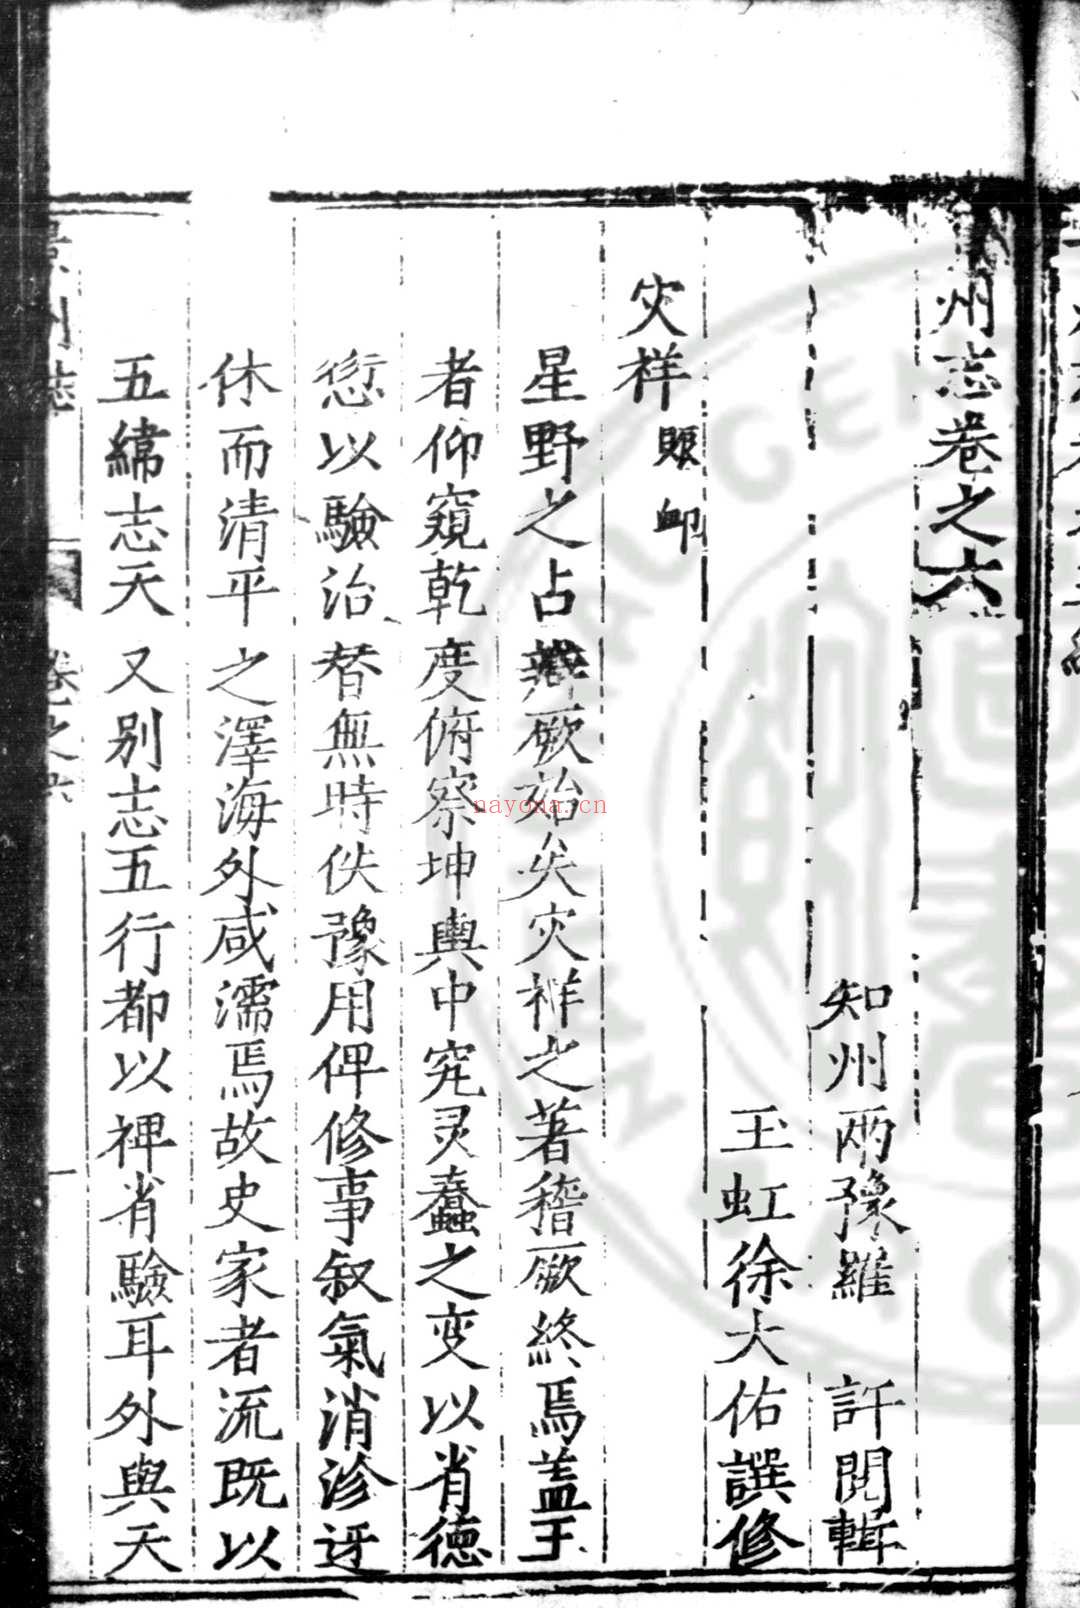 州志卷之六
知州兩豫羅 許閱輯
玉虹徐大佑譔修
灾祥 賑卹
星野之占辨厥始矣灾祥之著稽厥終焉盖王
者仰窺乾度俯察坤輿中究灵蠢之变以省德
愆以驗治替無時佚豫用俾修事叙氣消沴迓
休而清平之澤海外咸濡焉故史家者流既以
五緯志天又别志五行都以裨省驗耳外與天
卷之六
一
nayona.cn